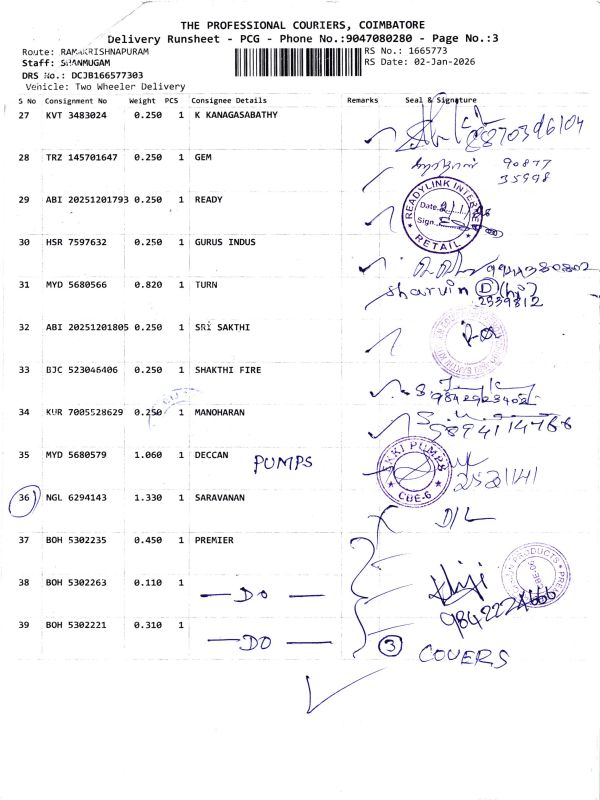 THE PROFESSIONAL COURIERS, COIMBATORE
Delivery Runsheet - PCG - Phone No.:9047080280 - Page No.:3
Route: RAMAKRISHNAPURAM
RS No.: 1665773
Staff: SHANMUGAM
RS Date: 02-Jan-2026
DRS No.: DCJB166577303
Vehicle: Two Wheeler Delivery
S No Consignment No Weight PCS Consignee Details Remarks Seal & Signature
27 KVT 3483024 0.250 1 K KANAGASABATHY
8870396104
28 TRZ 145701647 0.250 1 GEM
90877
35998
29 ABI 20251201793 0.250 1 READY
READYLINK INTERNET
Date:
Sign.
RETAIL
30 HSR 7597632 0.250 1 GURUS INDUS
31 MYD 5680566 0.820 1 TURN
Sharvin D
2559812
32 ABI 20251201805 0.250 1 SRI SAKTHI
33 BJC 523046406 0.250 1 SHAKTHI FIRE
34 KUR 7005528629 0.250 1 MANOHARAN
35 MYD 5680579 1.060 1 DECCAN PUMPS
PUMPS
CBE-6
36 NGL 6294143 1.330 1 SARAVANAN
D/L
37 BOH 5302235 0.450 1 PREMIER
38 BOH 5302263 0.110 1
— DO —
39 BOH 5302221 0.310 1
— DO —
3 COVERS